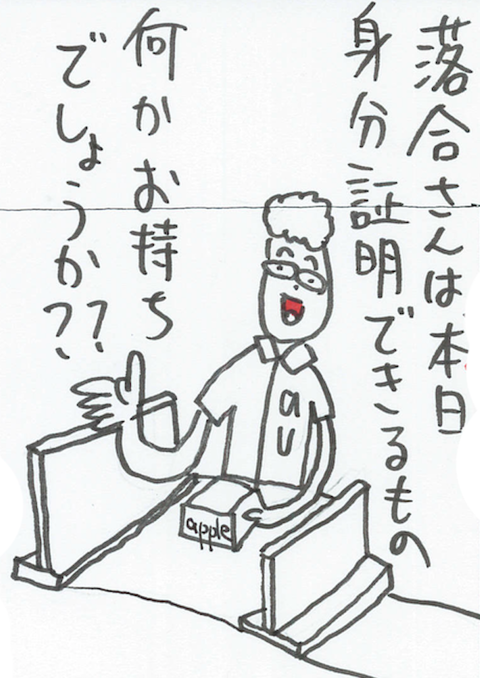 落合さんは本日
身分証明できるもの
何かお持ち
でしょうか??
au
apple